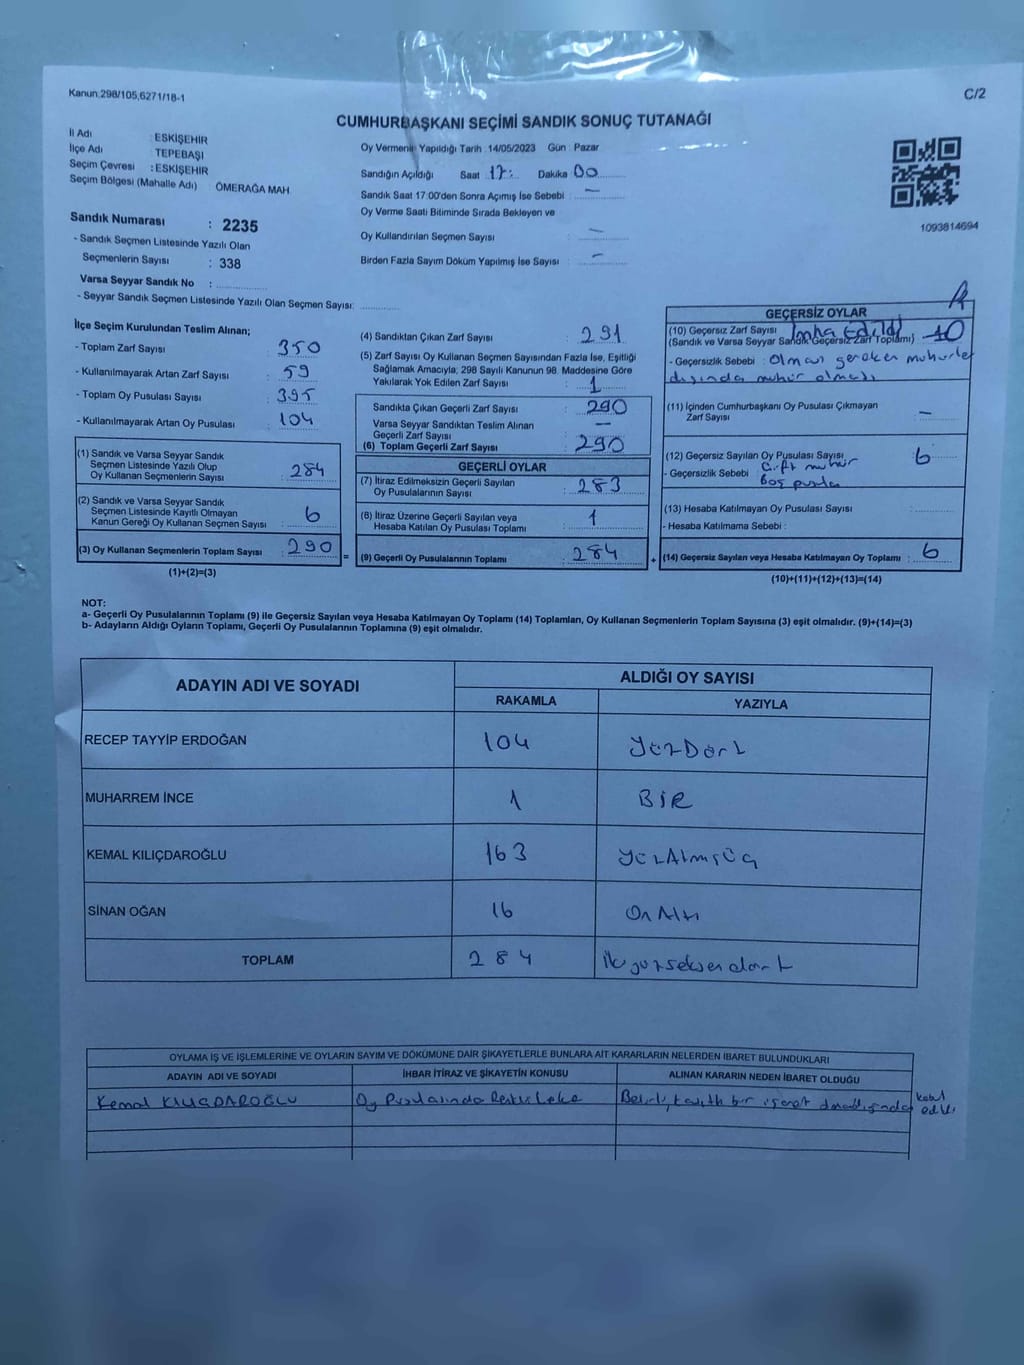 Kanun.298/105,6271/18-1
C/2
CUMHURBAŞKANI SEÇİMİ SANDIK SONUÇ TUTANAĞI
İl Adı : ESKİŞEHİR
İlçe Adı TEPEBAŞI
Seçim Çevresi : ESKİŞEHİR
Seçim Bölgesi (Mahalle Adı) ÖMERAĞA MAH.
Oy Vermenin Yapıldığı Tarih : 14/05/2023 Gün : Pazar
Sandığın Açıldığı Saat 17: Dakika 00
Sandık Saat 17:00'den Sonra Açımış İse Sebebi : —
Oy Verme Saati Bitiminde Sırada Bekleyen ve
Oy Kullandırılan Seçmen Sayısı : —
Birden Fazla Sayım Döküm Yapılmış İse Sayısı : —
1093814694
Sandık Numarası : 2235
- Sandık Seçmen Listesinde Yazılı Olan
Seçmenlerin Sayısı : 338
Varsa Seyyar Sandık No :
- Seyyar Sandık Seçmen Listesinde Yazılı Olan Seçmen Sayısı:
İlçe Seçim Kurulundan Teslim Alınan;
- Toplam Zarf Sayısı : 350
- Kullanılmayarak Artan Zarf Sayısı : 59
- Toplam Oy Pusulası Sayısı : 395
- Kullanılmayarak Artan Oy Pusulası : 104
(1) Sandık ve Varsa Seyyar Sandık
Seçmen Listesinde Yazılı Olup
Oy Kullanan Seçmenlerin Sayısı : 284
(2) Sandık ve Varsa Seyyar Sandık
Seçmen Listesinde Kayıtlı Olmayan
Kanun Gereği Oy Kullanan Seçmen Sayısı : 6
(3) Oy Kullanan Seçmenlerin Toplam Sayısı : 290 =
(1)+(2)=(3)
(4) Sandıktan Çıkan Zarf Sayısı : 291
(5) Zarf Sayısı Oy Kullanan Seçmen Sayısından Fazla İse, Eşitliği
Sağlamak Amacıyla; 298 Sayılı Kanunun 98. Maddesine Göre
Yakılarak Yok Edilen Zarf Sayısı : 1
Sandıkta Çıkan Geçerli Zarf Sayısı : 290
Varsa Seyyar Sandıktan Teslim Alınan
Geçerli Zarf Sayısı : —
(6) Toplam Geçerli Zarf Sayısı : 290
GEÇERLİ OYLAR
(7) İtiraz Edilmeksizin Geçerli Sayılan
Oy Pusulalarının Sayısı : 283
(8) İtiraz Üzerine Geçerli Sayılan veya
Hesaba Katılan Oy Pusulası Toplamı : 1
(9) Geçerli Oy Pusulalarının Toplamı : 284 +
GEÇERSİZ OYLAR
(10) Geçersiz Zarf Sayısı İmha Edildi
(Sandık ve Varsa Seyyar Sandık Geçersiz Zarf Toplamı)
- Geçersizlik Sebebi : Olması gereken mühürler
dışında mühür olması
(11) İçinden Cumhurbaşkanı Oy Pusulası Çıkmayan
Zarf Sayısı : —
(12) Geçersiz Sayılan Oy Pusulası Sayısı : 6
- Geçersizlik Sebebi : Çift mühür
Boş pusula
(13) Hesaba Katılmayan Oy Pusulası Sayısı :
- Hesaba Katılmama Sebebi :
(14) Geçersiz Sayılan veya Hesaba Katılmayan Oy Toplamı : 6
(10)+(11)+(12)+(13)=(14)
NOT:
a- Geçerli Oy Pusulalarının Toplamı (9) ile Geçersiz Sayılan veya Hesaba Katılmayan Oy Toplamı (14) Toplamları, Oy Kullanan Seçmenlerin Toplam Sayısına (3) eşit olmalıdır. (9)+(14)=(3)
b- Adayların Aldığı Oyların Toplamı, Geçerli Oy Pusulalarının Toplamına (9) eşit olmalıdır.
ADAYIN ADI VE SOYADI ALDIĞI OY SAYISI
RAKAMLA YAZIYLA
RECEP TAYYİP ERDOĞAN 104 YüzDört
MUHARREM İNCE 1 BİR
KEMAL KILIÇDAROĞLU 163 YüzAtmışÜç
SİNAN OĞAN 16 On Altı
TOPLAM 284 ikiyüzseksendört
OYLAMA İŞ VE İŞLEMLERİNE VE OYLARIN SAYIM VE DÖKÜMÜNE DAİR ŞİKAYETLERLE BUNLARA AİT KARARLARIN NELERDEN İBARET BULUNDUKLARI
ADAYIN ADI VE SOYADI İHBAR İTİRAZ VE ŞİKAYETİN KONUSU ALINAN KARARIN NEDEN İBARET OLDUĞU
Kemal KILIÇDAROĞLU Oy Pusulasında Leke bir işaret kabul
edildi